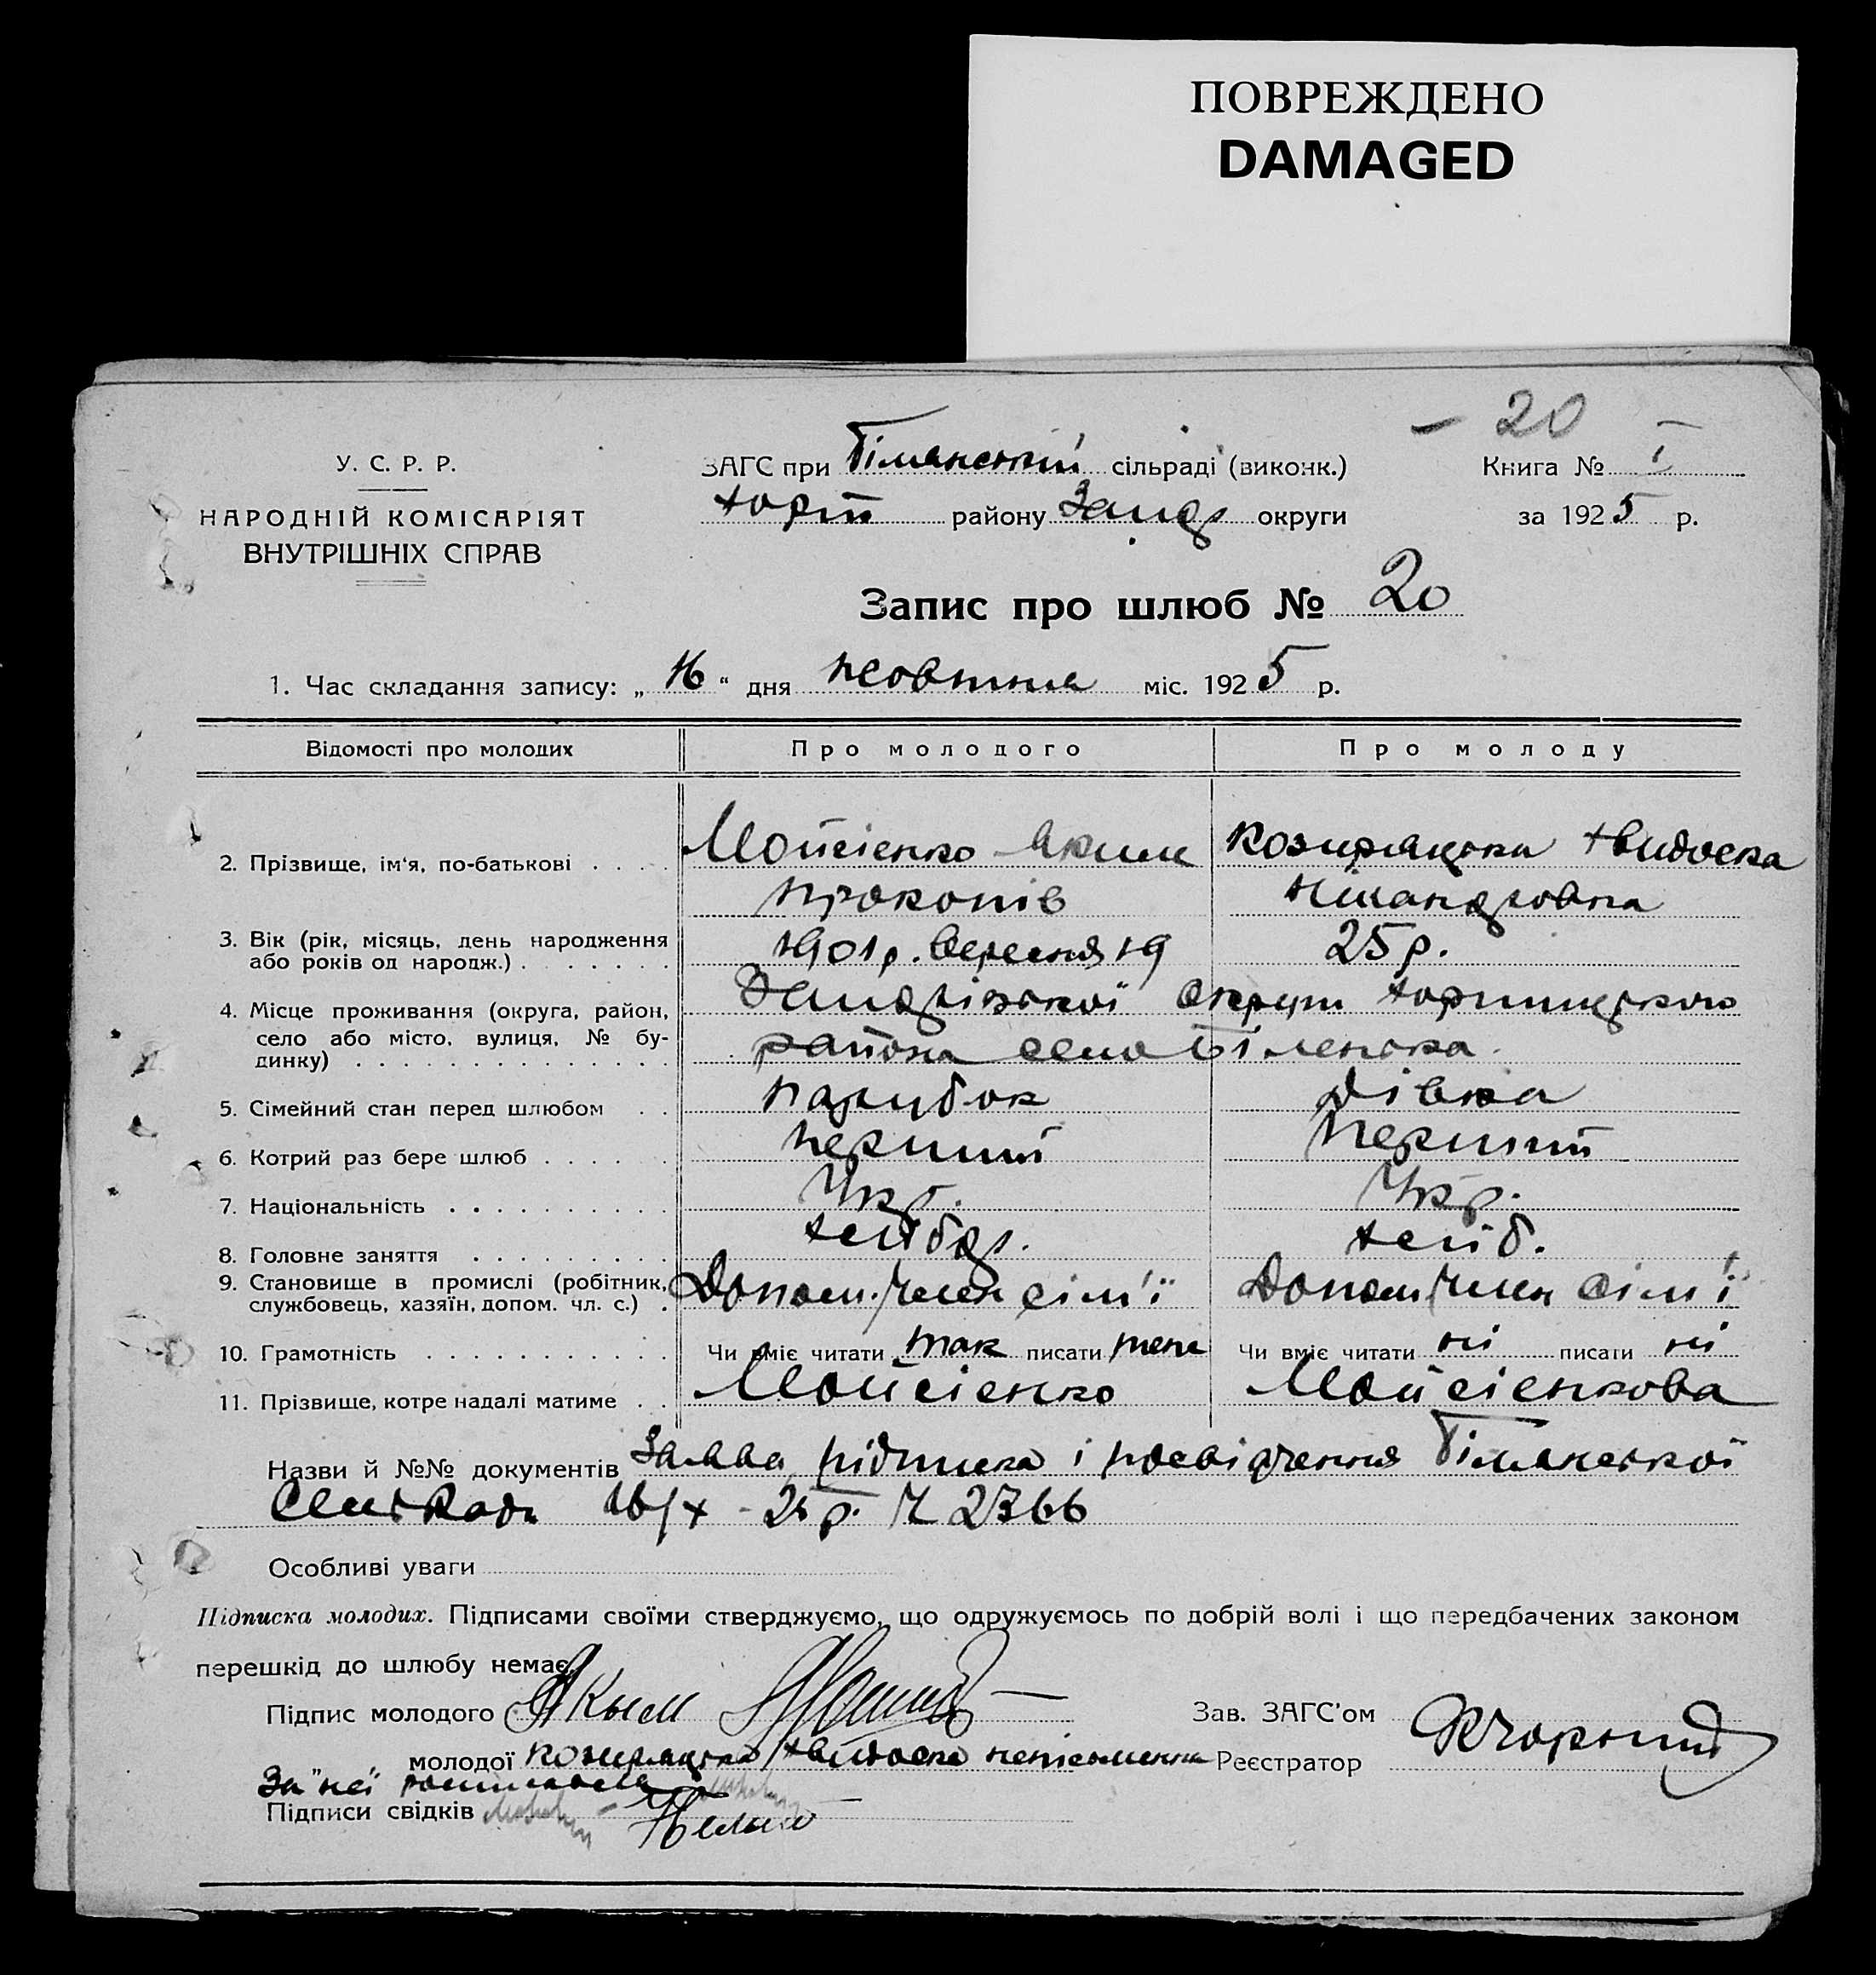 ПОВРЕЖДЕНО
DAMAGED
- 20
У. С. Р. Р.
НАРОДНІЙ КОМІСАРІЯТ
ВНУТРІШНІХ СПРАВ
ЗАГС при Біленській сільраді (виконк.)
Хорт району Запор округи
Книга № I
за 1925 р.
Запис про шлюб № 20
1. Час складання запису: „ 16 “ дня жовтня міс. 1925 р.
Відомості про молодих
Про молодого
Про молоду
2. Прізвище, ім'я, по-батькові
Мойсієнко Яким
Прокопів
Хвидоска
3. Вік (рік, місяць, день народження
або років од народж.)
1901 р. Вересня 19
25 р.
4. Місце проживання (округа, район,
село або місто, вулиця, № бу-
динку)
Запорізької округи Хортицького
району село Біленьке
5. Сімейний стан перед шлюбом
парубок
дівка
6. Котрий раз бере шлюб
перший
перший
7. Національність
Укр.
Укр.
8. Головне заняття
хлібор.
хліб.
9. Становище в промислі (робітник,
службовець, хазяїн, допом. чл. с.)
Допом. член сім'ї
Допом член сім'ї
10. Грамотність
Чи вміє читати так писати теж
Чи вміє читати ні писати ні
11. Прізвище, котре надалі матиме
Мойсієнко
Мойсієнкова
Назви й №№ документів Заява підписка і посвідчення Біленської
СільРади 16/X - 25 р. Ч 2366
Особливі уваги
Підписка молодих. Підписами своїми стверджуємо, що одружуємось по добрій волі і що передбачених законом
перешкід до шлюбу немає.
Підпис молодого Якым
Зав. ЗАГС'ом
молодої Хвидоска неписьменна
Реєстратор Чорний
За неї
Підписи свідків